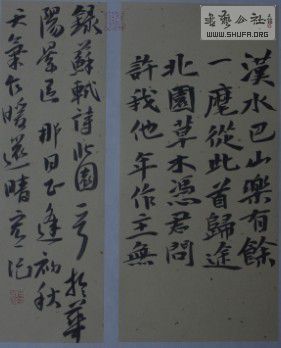 漢水巴山樂有餘
一麾從此首歸途
北園草木憑君問
許我他年作主無
錄蘇軾詩北園一首於華
陽景區那日正逢初秋
天氣乍暖還晴
書藝公社
WWW.SHUFA.ORG